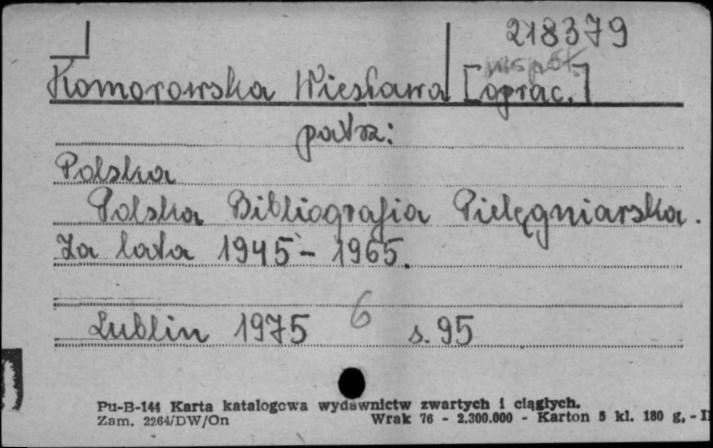 218379
współ.
Komorowska Wiesława [oprac.]
patrz:
Polska
Polska Bibliografia Pielęgniarska.
Za lata 1945 - 1965.
Lublin 1975 6 s. 95
Pu-B-144 Karta katalogowa wydawnictw zwartych i ciągłych.
Zam. 2264/DW/On Wrak 76 - 2.300.000 - Karton 5 kl. 180 g. - II